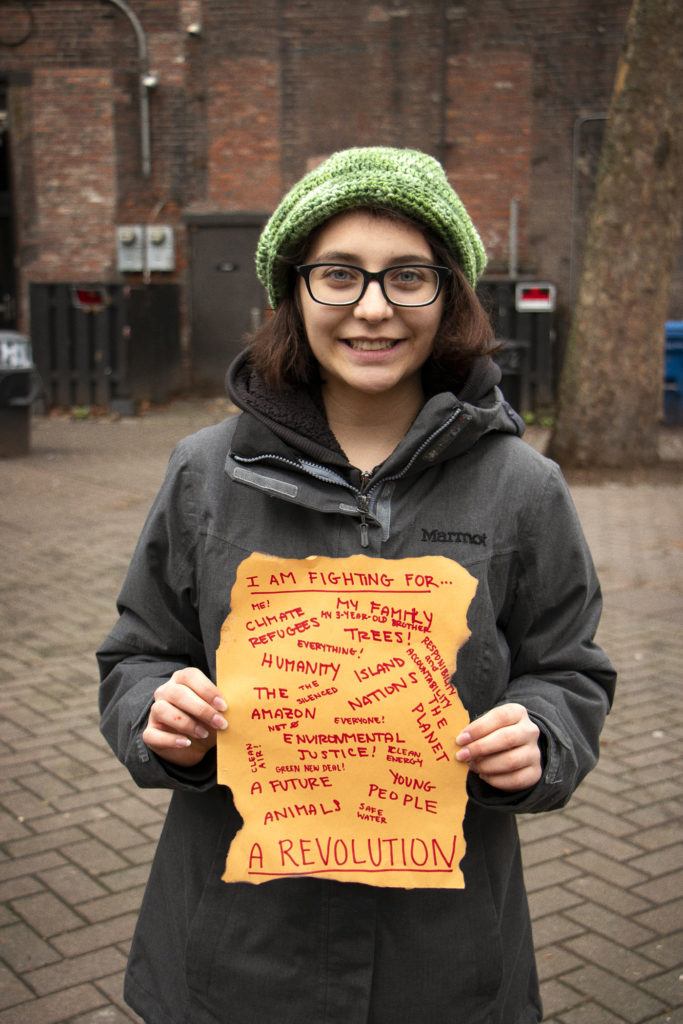 Marmot
I AM FIGHTING FOR...
ME!
MY FAMILY
CLIMATE
REFUGEES
MY 3-YEAR-OLD BROTHER
TREES!
EVERYTHING!
RESPONSIBILITY
and
ACCOUNTABILITY
HUMANITY
ISLAND
NATIONS
THE
SILENCED
THE
AMAZON
THE
PLANET
NET Ø
EVERYONE!
ENVIRONMENTAL
JUSTICE!
CLEAN
AIR!
CLEAN
ENERGY
GREEN NEW DEAL!
A FUTURE
YOUNG
PEOPLE
ANIMALS
SAFE
WATER
A REVOLUTION